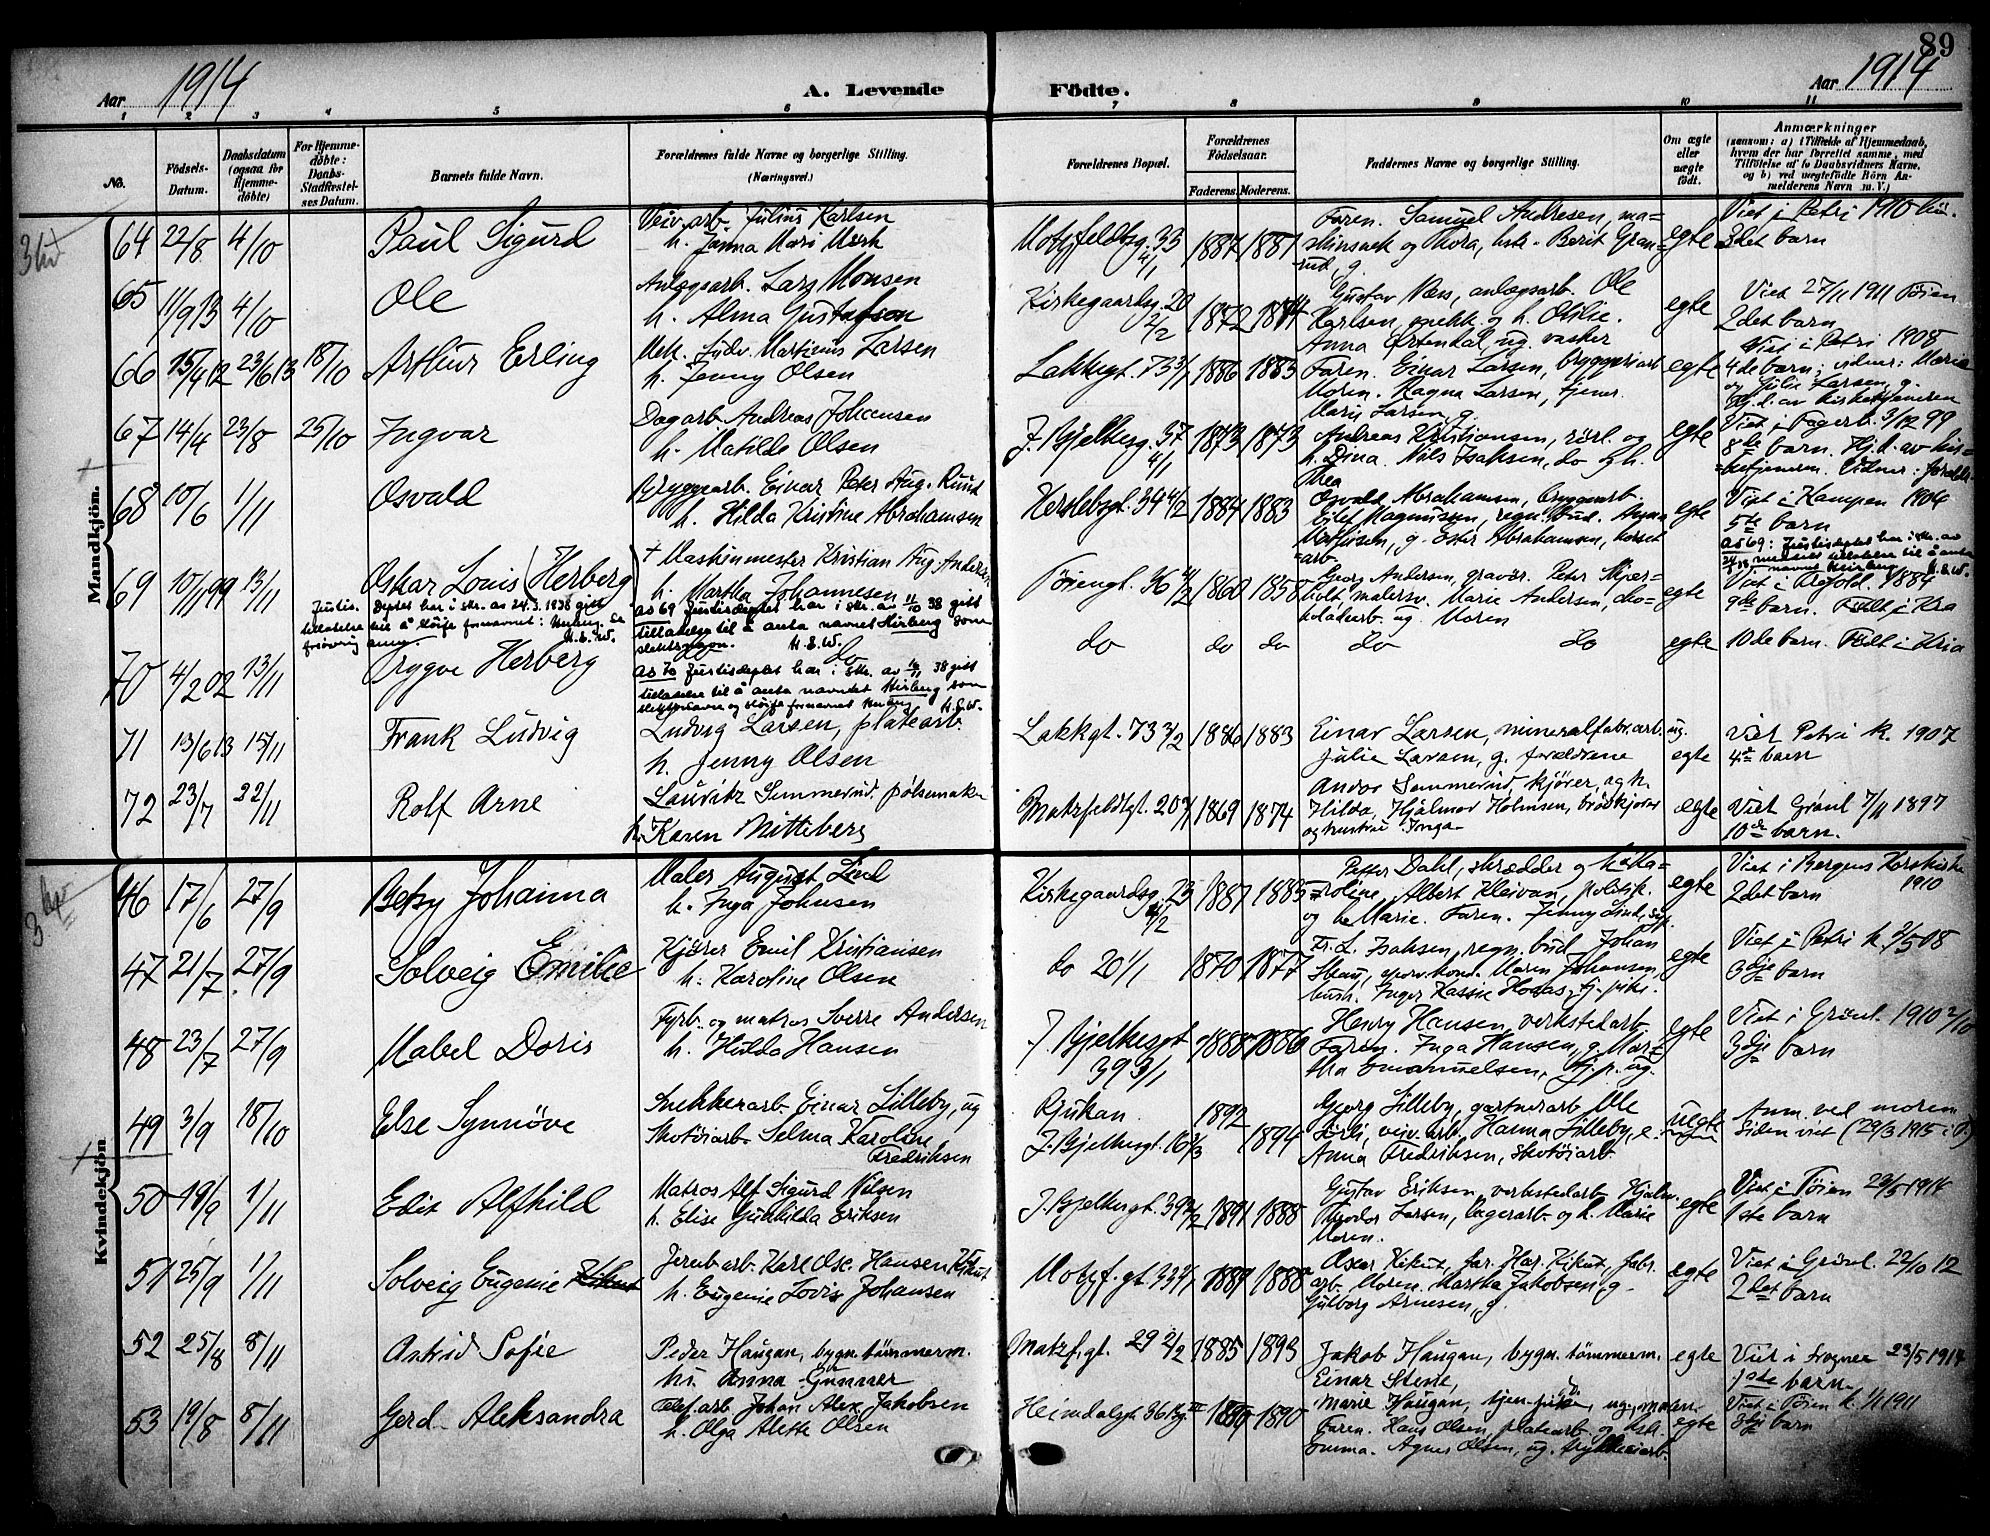 89
Aar 1914
A. Levende
Födte.
Aar 1914
1 2 3 4 5 6 7 8 9 10 11
No.
Födsels-
Datum.
Daabsdatum
(ogsaa for
Hjemme-
döbte)
For Hjemme-
döbte:
Daabs-
Stadfæstel-
ses Datum.
Barnets fulde Navn.
Forældrenes fulde Navne og borgerlige Stilling.
(Næringsvei.)
Forældrenes Bopæl.
Forældrenes
Födselsaar.
Faderens. Moderens.
Faddernes Navne og borgerlige Stilling.
Om ægte
eller
uægte
födt.
Anmærkninger
(saasom: a) i Tilfælde af Hjemmedaab,
hvem der har forrettet samme, med
Tilföielse af to Daabsvidners Navne,
og b) ved uægtefödte Börn An-
melderens Navn m. V.)
Mandkjön.
64 22/8 4/10 Paul Sigurd
Veiv.arb. Julius Karlsen
h. Janna Mari Mørk
Motzfeldtsg. 33
4/1
1887 1887
Faren. Samuel Andresen, ma-
skinsnek og Thora, hstr. Berit Gran-
rud, g.
egte
Viet i Petri 1910
3det barn
65 11/9 13 4/10 Ole
Anlægsarb. Lars Monsen
h. Alma Gustafson
Kirkegaardsg. 20
2/2
1872 1874
Gustav Næss, anlægsarb. Ole
Karlsen, snekk. og h. Otilie.
Anna Ørtendal, ug. vasker
egte
Viet 27/11 1911 Tøien
2det barn
66 15/4 12 23/6 13 18/10 Arthur Erling
Mek. Ludv. Martinus Larsen
h. Jenny Olsen
Lakkegt. 73 3/1
1886 1883
Faren. Einar Larsen, bryggeriarb
Moren. Ragna Larsen, tjener.
Marie Larsen, g.
egte
Viet i Petri 1908
4de barn; vidner: Marie
og Julie Larsen, g.
Hj.d. av kirketjeneren
67 14/4 23/8 25/10 Ingvar
Dagarb. Andreas Johansen
h. Matilde Olsen
J. Bjelkesg. 37
4/1
1873 1873
Andreas Kristiansen, rörl. og
h. Dina. Nils Isaksen, do og h.
Thea
egte
Viet i Fagerb. 3/12 99
8de barn. Hj.d. av kir-
ketjeneren. Vidner: foreldre
68 10/6 1/11 Osvald
Bryggearb. Einar Peter Aug. Rund
h. Hilda Kristine Abrahamsen
Herslebsgt. 34 4/2
1884 1883
Osvald Abrahamsen, bryggearb.
Eilef Magnussen, regn.bud. Anna
Mathisen, g. Ester Abrahamsen, korset
arb
egte
Viet i Kampen 1904
5te barn
69 10/11 99 13/11 Oskar Louis (Herberg)
+ Maskinmester Kristian Aug. Andersen
h. Martha Johannesen
Tøiengt. 36 4/2
1860 1858
Georg Andersen, gravör. Peter Skjer-
holt malersv. Marie Andersen, cho-
koladearb. ug. Moren
egte
Viet i Tryfold. 1884
9de barn. Født i Kra
Justis-
Deptet har i skr. av 24.3.1938 gitt
tillatelse til å sløife fornavnet: Henberg.
forøvrig
H.E.W.
Ad 69 Justisdeptet har i skr. av 11/10 38 gitt
tillatelse til å anta navnet Hirberg som
slektsnavn. H.E.W.
70 4/2 02 13/11 Trygve Herberg
do
do do do do do
egte
10de barn. Født i Kria
Ad 70 Justisdeptet har i skr. av 16/11 38 gitt
tillatelse til å anta navnet Hirberg som
slektsnavn og sløife fornavnet Herberg H.E.W.
71 13/6 13 15/11 Frank Ludvig
Ludvig Larsen, platearb.
h. Jenny Olsen
Lakkgt. 73 3/2
1886 1883
Einar Larsen, mineralfabr.arb. ug.
Julie Larsen, g. forældrene
egte
Viet Petri k. 1907
4de barn
72 23/7 22/11 Rolf Arne
Lauritz Sommerud, pølsemaker
h. Karen Mitteberg
Motzfeldtgt. 20
1869 1874
Andor Sommerud, kjører, og h.
Hilda, Hjalmar Holmsen, brødkjører
og hustru Inga
egte
Viet Grønl 7/11 1897
10de barn.
Kvindekjön
46 17/6 27/9 Betsy Johanna
Maler August Lind
h. Inga Johnsen
Kirkegaardsg. 23
4/2
1887 1885
Petter Dahl, skrædder og h. Ka-
roline, Albert Kleivan, politik.
og h. Marie. Faren. Jenny Lind, syp.
egte
Viet i Bergens Korskirke
1910
2det barn
47 21/7 27/9 Solveig Emilie
Kjører Emil Kristiansen
h. Karoline Olsen
do 20 1/1
1870 1877
Fr. L. Isaksen, regn.bud. Johan
Skau, sporv.kond. Maren Johansen,
hush. Inger Kassie Hoaas, tj.pike.
egte
Viet i Petri k. 2/5 08
3dje barn
48 23/7 27/9 Mabel Doris
Fyrb. og matros Sverre Andersen
h. Hulda Hansen
J. Bjelkesgt
39 3/1
1888 1886
Henry Hansen, verkstedarb.
Faren. Inga Hansen, g. Mar-
tha Emanuelsen, tj.p. ug.
egte
Viet i Grønl. 1910 2/10
3dje barn
49 3/9 18/10 Else Synnöve
Snekkerarb. Einar Lilleby, ug
Skotöiarb. Selma Karoline
Fredriksen
Rjukan.
J. Bjelkesgt. 16 1/3
1892
1894
Georg Lilleby, gartnerarb Ole
Sørli, veiv.arb. Hanna Lilleby, e.
Anna Fredriksen, skotöiarb.
uegte
Anm. ved moren
Siden viet (29/3 1915 i P.)
50 19/9 1/11 Edit Alfhild
Matros Alf Sigurd Nilsen
h. Elise Gunhilda Eriksen
J. Bjelkesgt. 39 2/2
1891 1888
Gustav Eriksen, verkstedarb. Hjalm.
Theodor Larsen, lagerarb. og h. Marie
Moren.
egte
Viet i Tøien 29/5 1914
1ste barn
51 25/9 1/11 Solveig Eugenie
Jernb.arb. Karl Osc. Hansen Kikut
h. Eugenie Lovise Johansen
Motzf.gt. 33
1887 1888
Oscar Kikut, far. Har. Kikut, fabr.
arb. Moren. Martha Jakobsen, g.
Gulborg Arnesen, g.
egte
Viet i Grønl. 22/10 12
2det barn
52 25/8 8/11 Astrid Sofie
Peder Haugan, bygn. tømmerm.
h. Anna Gunner
Motzf.gt. 29 2/2
1885 1893
Jakob Haugan, bygn. tömmerm.
Einar Stene,
Marie Haugan, tjen.pike, ug., moren
egte
Viet i Frogner 23/5 1914
1ste barn
53 19/8 8/11 Gerd Aleksandra
Telef.arb Johan Alex. Jakobsen
h. Olga Alette Olsen
Heimdalsgt. 36
1889 1890
Faren. Hans Olsen, platearb. og hstr.
Emma. Agnes Olsen, ug. trykkeriarb.
egte
Viet i Tøien k. 1/1 1911
3dje barn